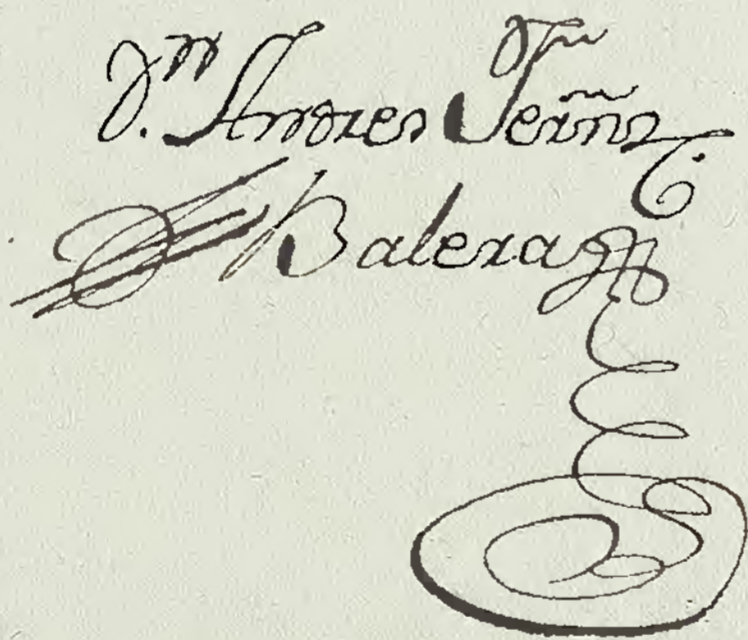 Dn. Andres Ferñz
Balera